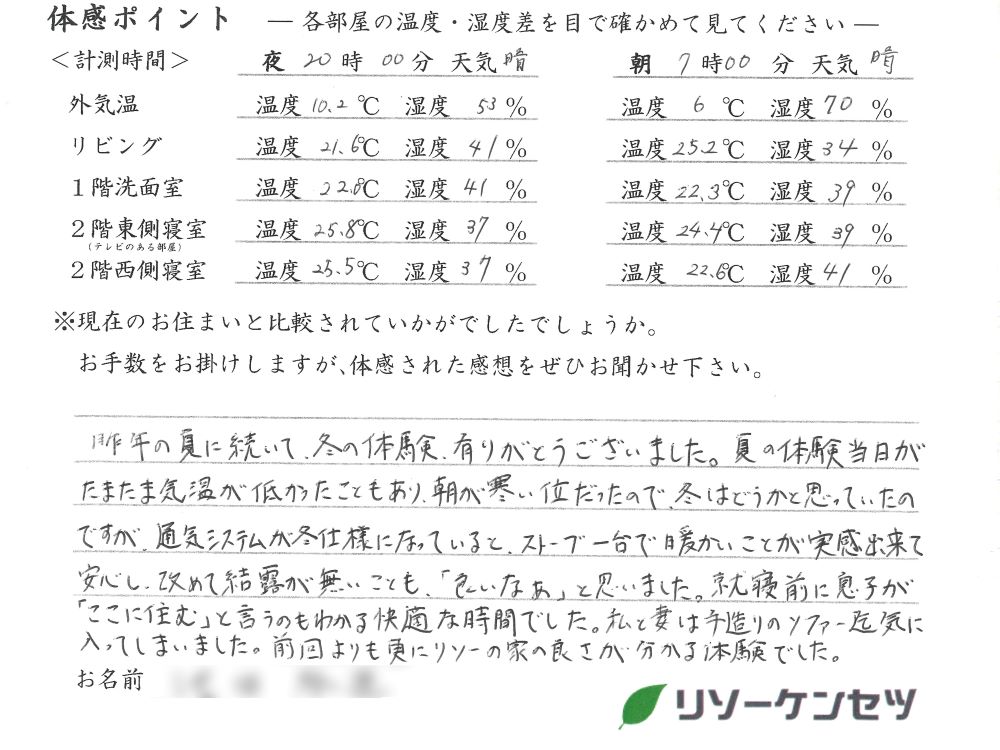 体感ポイント ― 各部屋の温度・湿度差を目で確かめて見てください ―
＜計測時間＞ 夜 20時 00分 天気 晴 朝 7時00 分 天気 晴
外気温 温度 10.2 ℃ 湿度 53 % 温度 6 ℃ 湿度 70 %
リビング 温度 21.6℃ 湿度 41 % 温度 25.2℃ 湿度 34 %
１階洗面室 温度 22.0℃ 湿度 41 % 温度 22.3℃ 湿度 39 %
２階東側寝室 温度 25.8℃ 湿度 37 % 温度 24.4℃ 湿度 39 %
(テレビのある部屋)
２階西側寝室 温度 25.5℃ 湿度 37 % 温度 22.6℃ 湿度 41 %
※現在のお住まいと比較されていかがでしたでしょうか。
お手数をお掛けしますが、体感された感想をぜひお聞かせ下さい。
昨年の夏に続いて、冬の体験、有りがとうございました。夏の体験当日が
たまたま気温が低かったこともあり、朝が寒い位だったので、冬はどうかと思っていたの
ですが、通気システムが冬仕様になっていると、ストーブ一台で暖かいことが実感出来て
安心し、改めて結露が無いことも、「良いなぁ」と思いました。就寝前に息子が
「ここに住む」と言うのもわかる快適な時間でした。私と妻は手造りのソファー迄気に
入ってしまいました。前回よりも更にリソーの家の良さが分かる体験でした。
お名前
リソーケンセツ